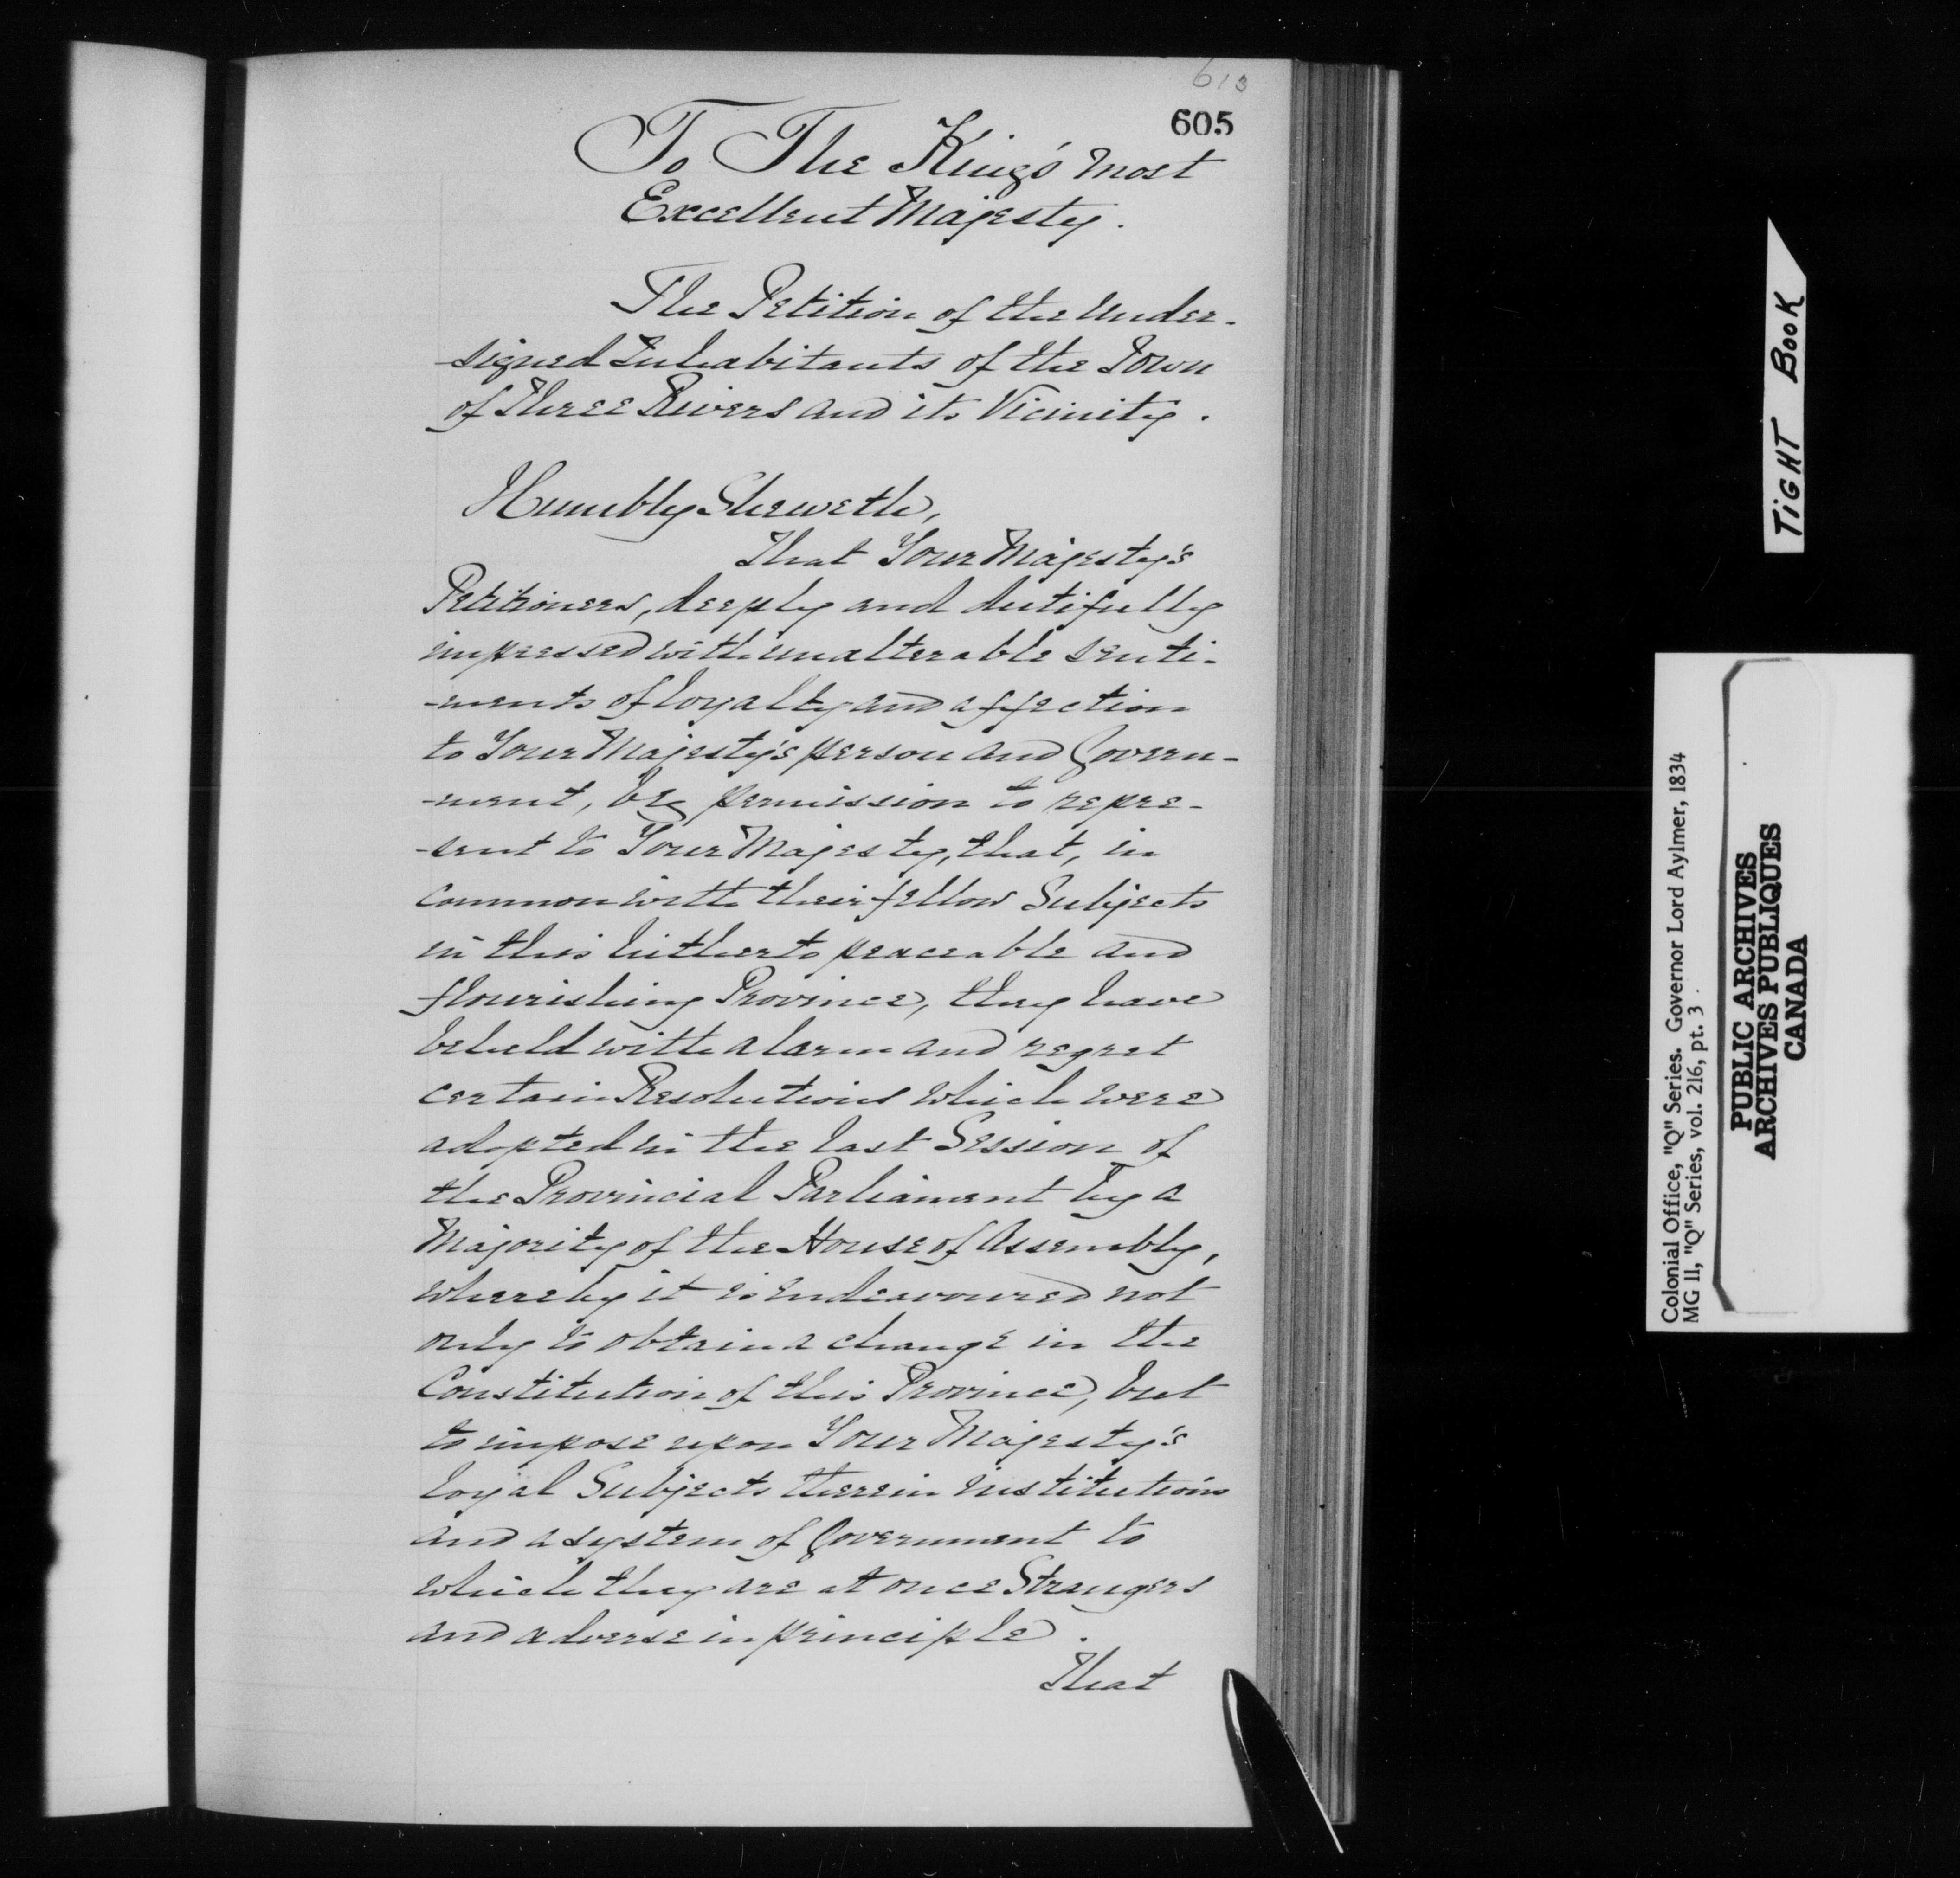 613
605
To The King's Most
Excellent Majesty.
The Petition of the Under-
-signed Inhabitants of the Town
of Three Rivers and its Vicinity.
Humbly Sheweth,
That Your Majesty's
Petitioners, deeply and dutifully
impressed with unalterable senti-
-ments of loyalty and affection
to Your Majesty's person and Govern-
-ment, beg permission to repre-
-sent to Your Majesty, that, in
common with their fellow Subjects
in this hitherto peaceable and
flourishing Province, they have
beheld with alarm and regret
certain Resolutions which were
adopted in the last Session of
the Provincial Parliament by a
Majority of the House of Assembly,
whereby it is endeavoured not
only to obtain a change in the
Constitution of this Province, but
to impose upon Your Majesty's
loyal Subjects therein institutions
and a system of Government to
which they are at once Strangers
and adverse in principle.
That
TIGHT BOOK
Colonial Office, "Q" Series. Governor Lord Aylmer, 1834
MG 11, "Q" Series, vol. 216, pt. 3
PUBLIC ARCHIVES
ARCHIVES PUBLIQUES
CANADA